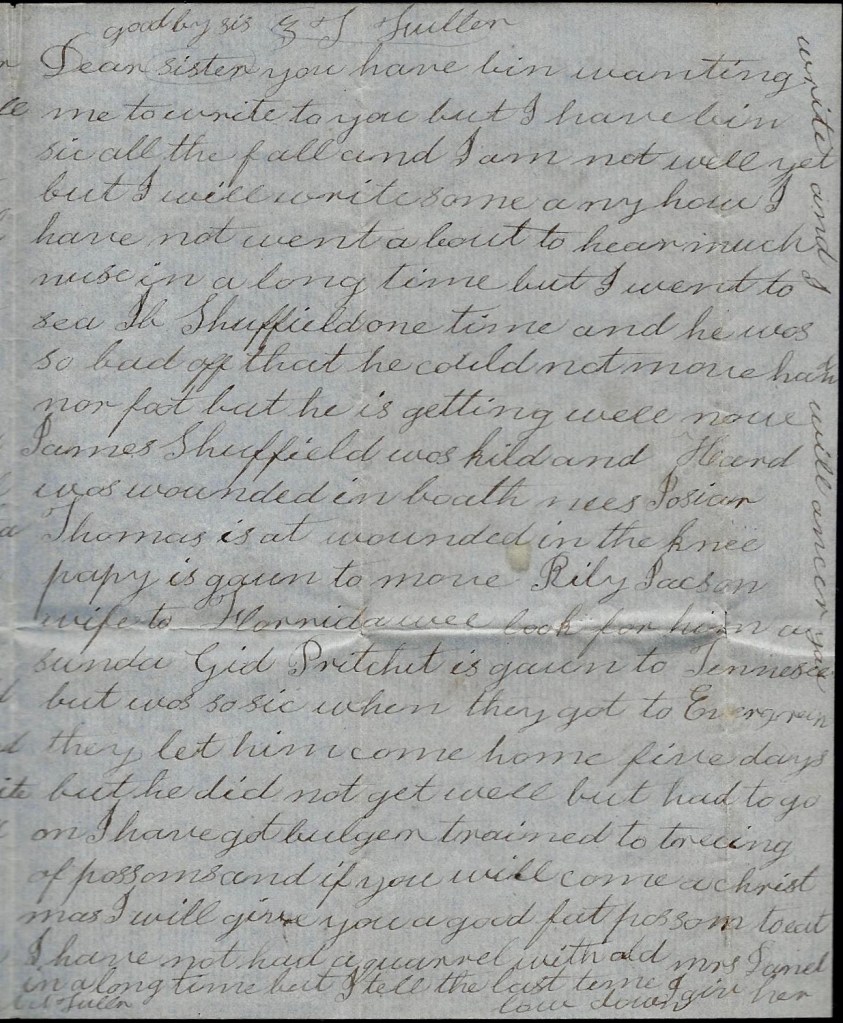 good by sis G J Fuller
Dear sister you have bin wanting
me to write to you but I have bin
sic all the fall and I am not well yet
but I will write some any how I
have not went about to hear much
nuse in a long time but I went to
sea Ib Shuffield one time and he was
so bad off that he could not move han
nor foot but he is getting well now
James Shuffield was kild and Heard
was wounded in boath nees Josiar
Thomas is at wounded in the knee
papy is gawn to move Rily Jacson
wife to Florrida wee look for him a
sunda Gid Pritchet is gawn to Tennesee
but was so sic when they got to Evergreen
they let him come home five days
but he did not get well but had to go
on I have got bulger trained to treeing
of possoms and if you will come a christ
mas I will give you a good fat possom to eat
I have not had a quarrel with old mrs Janel
in a long time but I tell the last time I giv her
low down
Fuller
write and I will ancer you